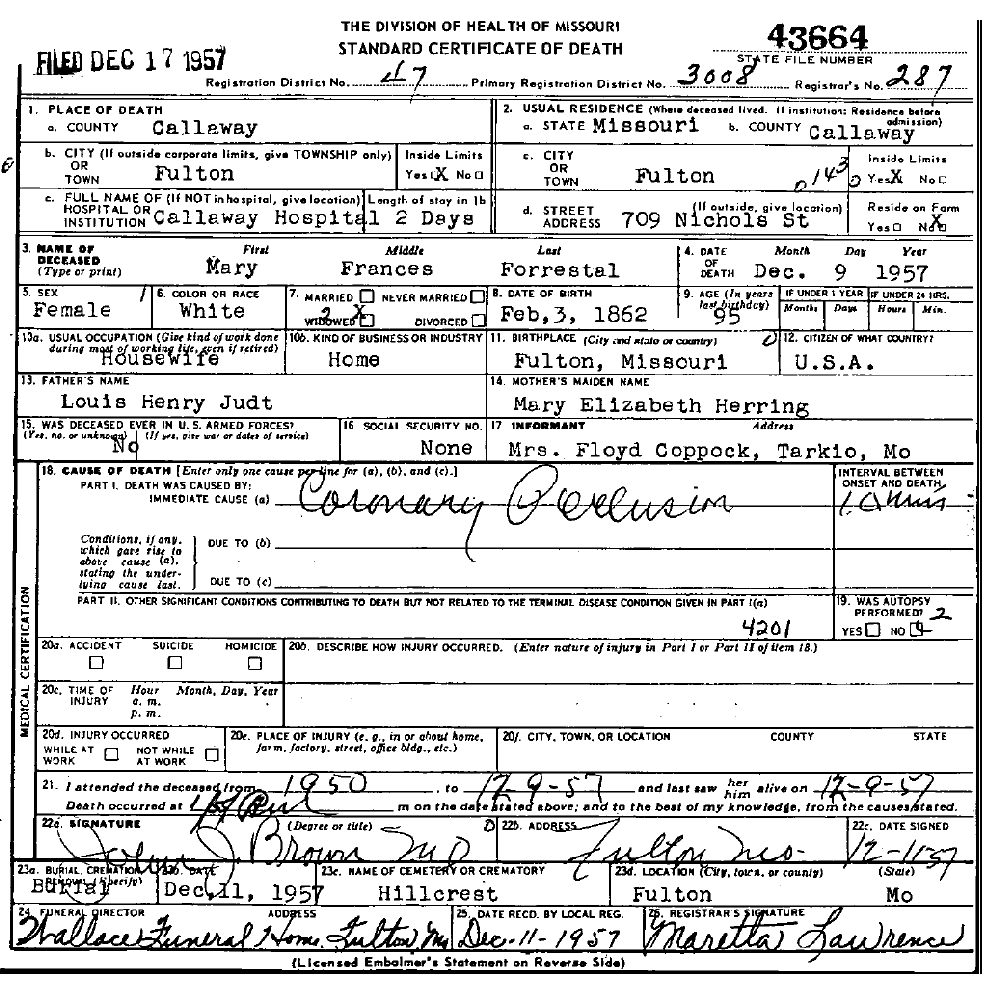 THE DIVISION OF HEALTH OF MISSOURI
STANDARD CERTIFICATE OF DEATH
43664
STATE FILE NUMBER
FILED DEC 17 1957
Registration District No. 47 Primary Registration District No. 3008 Registrar's No. 287
1. PLACE OF DEATH
a. COUNTY Callaway
2. USUAL RESIDENCE (Where deceased lived. If institution: Residence before admission)
a. STATE Missouri b. COUNTY Callaway
b. CITY (If outside corporate limits, give TOWNSHIP only) OR TOWN Fulton
Inside Limits Yes X No
c. CITY OR TOWN Fulton 0143
Inside Limits Yes X No
c. FULL NAME OF (If NOT in hospital, give location) HOSPITAL OR INSTITUTION Callaway Hospital
Length of stay in 1b 2 Days
d. STREET ADDRESS (If outside, give location) 709 Nichols St
Reside on Farm Yes No X
3. NAME OF DECEASED (Type or print) First Middle Last
Mary Frances Forrestal
4. DATE OF DEATH Month Day Year
Dec. 9 1957
5. SEX Female
6. COLOR OR RACE White
7. MARRIED NEVER MARRIED
WIDOWED X DIVORCED
2
8. DATE OF BIRTH Feb,3, 1862
9. AGE (In years last birthday) 95
IF UNDER 1 YEAR Months Days
IF UNDER 24 HRS. Hours Min.
10a. USUAL OCCUPATION (Give kind of work done during most of working life, even if retired) Housewife
10b. KIND OF BUSINESS OR INDUSTRY Home
11. BIRTHPLACE (City and state or country) Fulton, Missouri
12. CITIZEN OF WHAT COUNTRY? U.S.A.
13. FATHER'S NAME Louis Henry Judt
14. MOTHER'S MAIDEN NAME Mary Elizabeth Herring
15. WAS DECEASED EVER IN U.S. ARMED FORCES? (Yes, no. or unknown) (If yes, give war or dates of service) No
16 SOCIAL SECURITY NO. None
17 INFORMANT Address
Mrs. Floyd Coppock, Tarkio, Mo
18. CAUSE OF DEATH [Enter only one cause per line for (a), (b), and (c).]
PART I. DEATH WAS CAUSED BY:
IMMEDIATE CAUSE (a) Coronary Occlusion
INTERVAL BETWEEN ONSET AND DEATH
Conditions, if any. which gave rise to above cause (a). stating the underlying cause last.
DUE TO (b)
DUE TO (c)
PART II. OTHER SIGNIFICANT CONDITIONS CONTRIBUTING TO DEATH BUT NOT RELATED TO THE TERMINAL DISEASE CONDITION GIVEN IN PART I(a)
4201
19. WAS AUTOPSY PERFORMED? 2
YES NO
MEDICAL CERTIFICATION
20a. ACCIDENT SUICIDE HOMICIDE
20b. DESCRIBE HOW INJURY OCCURRED. (Enter nature of injury in Part I or Part II of item 18.)
20c. TIME OF INJURY Hour Month, Day, Year
a. m.
p. m.
20d. INJURY OCCURRED
WHILE AT WORK NOT WHILE AT WORK
20e. PLACE OF INJURY (e. g., in or about home, farm, factory, street, office bldg., etc.)
20f. CITY, TOWN, OR LOCATION COUNTY STATE
21. I attended the deceased from 1950 , to 12-9-57 and last saw her him alive on 12-9-57
Death occurred at m on the date stated above; and to the best of my knowledge, from the causes stated.
22a. SIGNATURE (Degree or title) Brown MD
22b. ADDRESS Fulton Mo-
22c. DATE SIGNED 12-11-57
23a. BURIAL, CREMATION (Specify) Burial
23b. DATE Dec,11, 1957
23c. NAME OF CEMETERY OR CREMATORY Hillcrest
23d. LOCATION (City, town, or county) (State)
Fulton Mo
24. FUNERAL DIRECTOR ADDRESS
Wallace Funeral Home, Fulton, Mo
25. DATE RECD. BY LOCAL REG. Dec-11-1957
26. REGISTRAR'S SIGNATURE Maretta Lawrence
(Licensed Embalmer's Statement on Reverse Side)